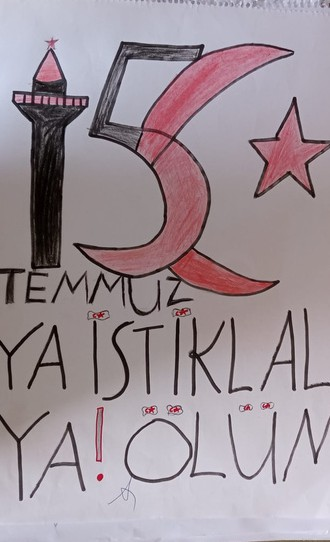 15
TEMMUZ
YA İSTİKLAL
YA! ÖLÜM